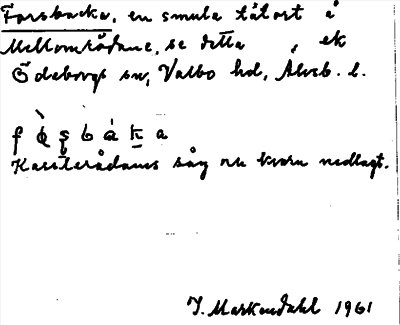 Forsbacka, en smula tätort å
Mellområdane, se detta, ek
Ödeborgs sn, Valbo hd, Älvsb. l.
såg och kvarn nedlagt.
J. Markendahl 1961